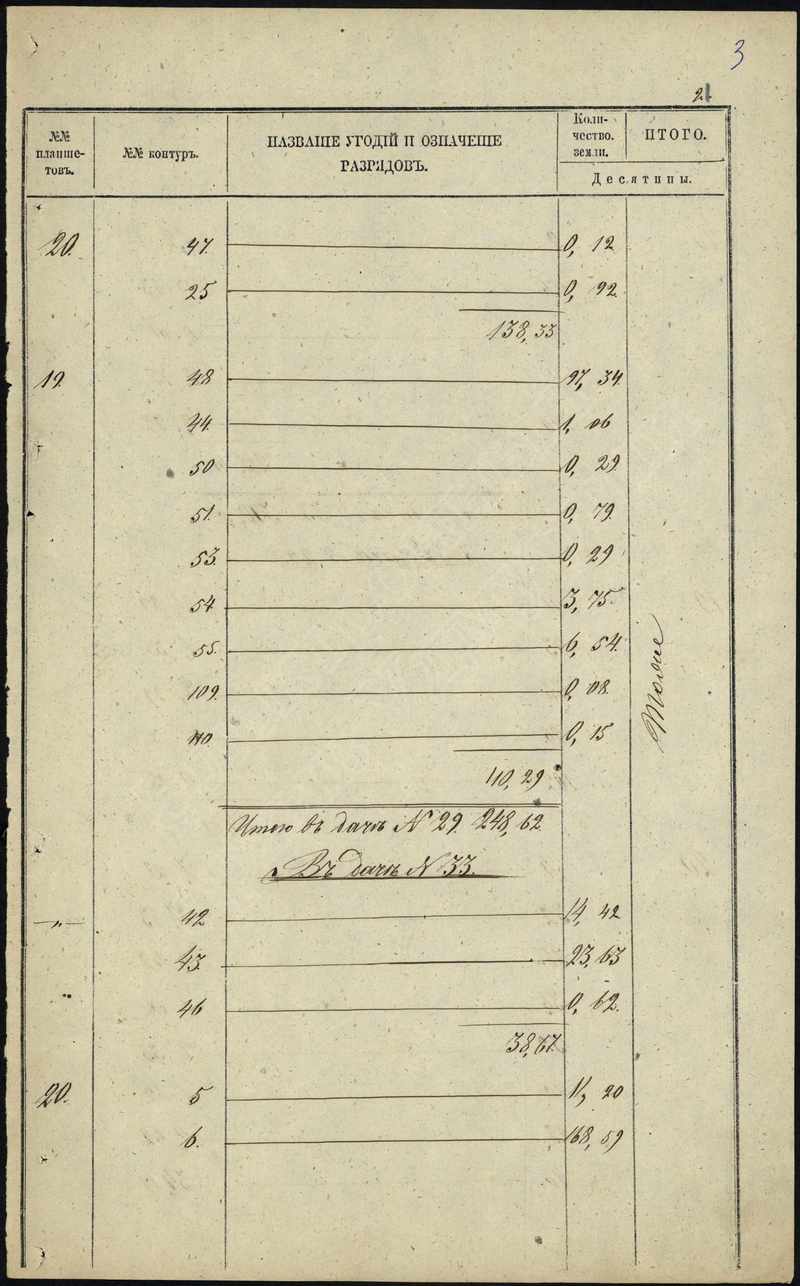 3
21
№№ планше-
товъ.
№№ контуръ.
НАЗВАНІЕ УГОДІЙ И ОЗНАЧЕНІЕ
РАЗРЯДОВЪ.
Коли-
чество.
земли.
ИТОГО.
Десятины.
20. 47. 0, 12
25 0, 92
138, 33
19. 48 97, 34
44. 1, 06
50 0, 29
51. 0, 79
53. 0, 29
54 3, 75
55. 6, 54
109. 0, 08
110. 0, 15
110, 29
Тоже
Итого въ дачѣ № 29. 248, 62
Въ дачѣ № 33.
—„— 42 14, 42
43. 23, 63
46 0, 62.
38, 67.
20. 5 11, 20
6. 168, 59